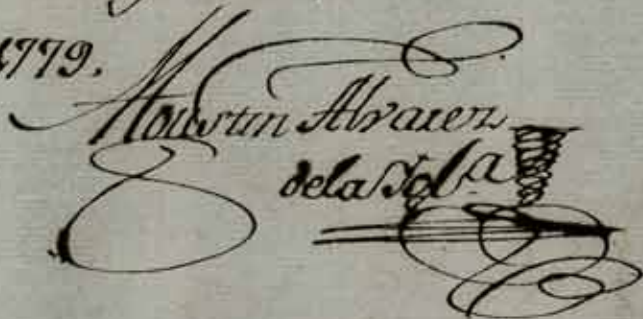 1779.
Agustin Alvarez
de la Sola